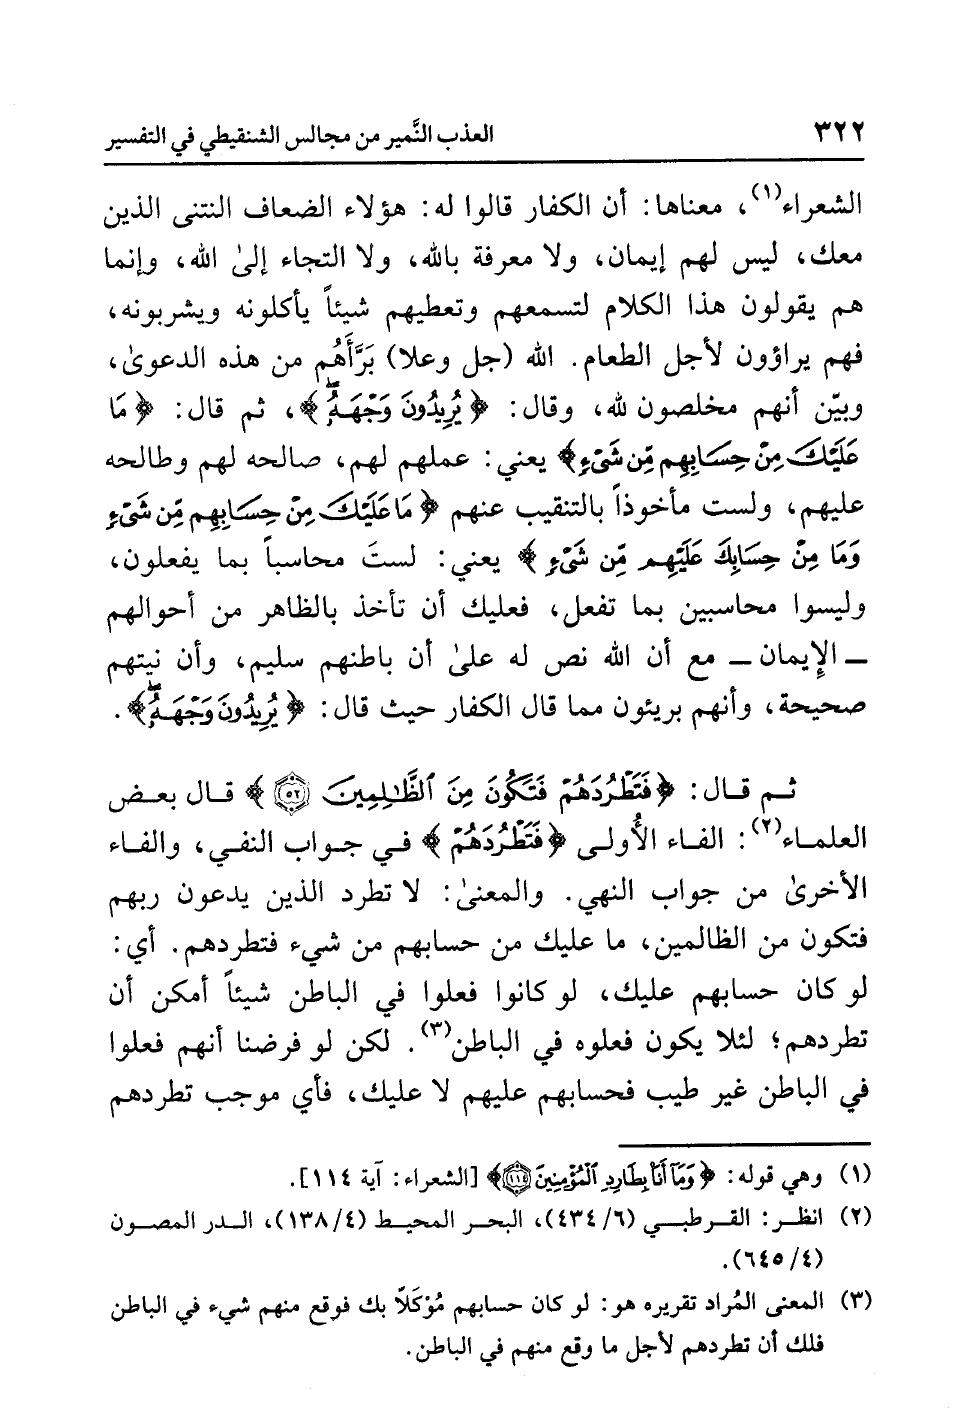 ٣٢٢ العذب النَّمير من مجالس الشنقيطي في التفسير
الشعراء(١)، معناها: أن الكفار قالوا له: هؤلاء الضعاف النتنى الذين
معك، ليس لهم إيمان، ولا معرفة بالله، ولا التجاء إلىٰ الله، وإنما
هم يقولون هذا الكلام لتسمعهم وتعطيهم شيئاً يأكلونه ويشربونه،
فهم يراؤون لأجل الطعام. الله (جل وعلا) بَرَّأَهُم من هذه الدعوىٰ،
وبيّن أنهم مخلصون لله، وقال: ﴿يُرِيدُونَ وَجْهَهُۥۖ﴾، ثم قال: ﴿مَا
عَلَيْكَ مِنْ حِسَابِهِم مِّن شَيْءٍ﴾ يعني: عملهم لهم، صالحه لهم وطالحه
عليهم، ولست مأخوذاً بالتنقيب عنهم ﴿مَا عَلَيْكَ مِنْ حِسَابِهِم مِّن شَيْءٍ
وَمَا مِنْ حِسَابِكَ عَلَيْهِم مِّن شَيْءٍ﴾ يعني: لستَ محاسباً بما يفعلون،
وليسوا محاسبين بما تفعل، فعليك أن تأخذ بالظاهر من أحوالهم
ـ الإِيمان ـ مع أن الله نص له علىٰ أن باطنهم سليم، وأن نيتهم
صحيحة، وأنهم بريئون مما قال الكفار حيث قال: ﴿يُرِيدُونَ وَجْهَهُۥۖ﴾.
ثم قال: ﴿فَتَطْرُدَهُمْ فَتَكُونَ مِنَ ٱلظَّٰلِمِينَ ٥٢﴾ قال بعض
العلماء(٢): الفاء الأُولى ﴿فَتَطْرُدَهُمْ﴾ في جواب النفي، والفاء
الأخرىٰ من جواب النهي. والمعنىٰ: لا تطرد الذين يدعون ربهم
فتكون من الظالمين، ما عليك من حسابهم من شيء فتطردهم. أي:
لو كان حسابهم عليك، لو كانوا فعلوا في الباطن شيئاً أمكن أن
تطردهم؛ لئلا يكون فعلوه في الباطن(٣). لكن لو فرضنا أنهم فعلوا
في الباطن غير طيب فحسابهم عليهم لا عليك، فأي موجب تطردهم
(١) وهي قوله: ﴿وَمَآ أَنَا۠ بِطَارِدِ ٱلْمُؤْمِنِينَ ١١٤﴾ [الشعراء: آية ١١٤].
(٢) انظر: القرطبي (٤٣٤/٦)، البحر المحيط (١٣٨/٤)، الدر المصون
(٦٤٥/٤).
(٣) المعنى المُراد تقريره هو: لو كان حسابهم مُوْكَلاً بك فوقع منهم شيء في الباطن
فلك أن تطردهم لأجل ما وقع منهم في الباطن.